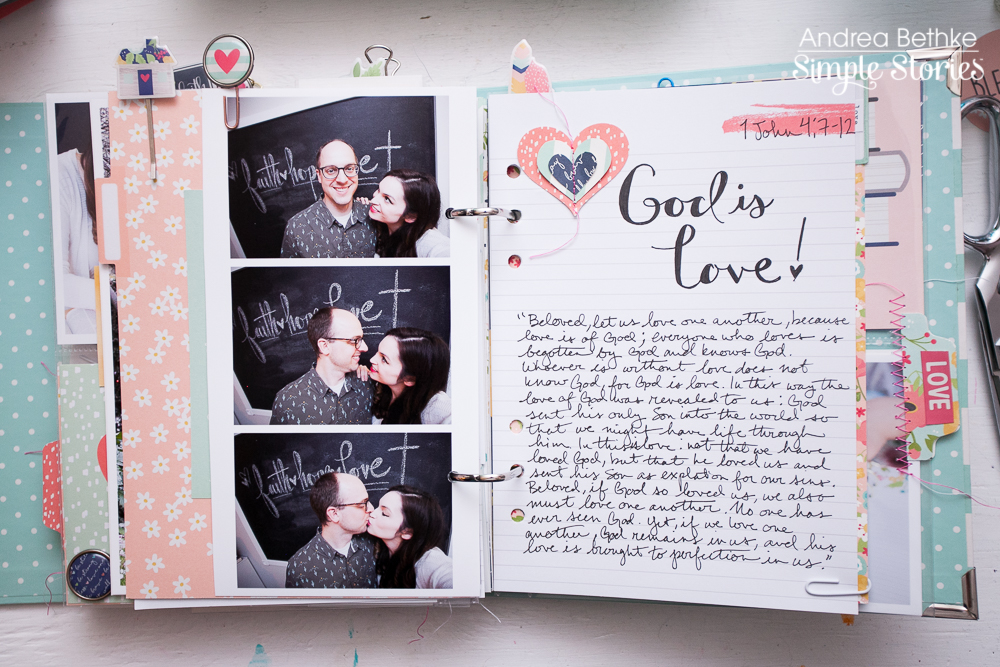 Andrea Bethke
Simple Stories
faith hope love
faith hope love
faith hope love
1 John 4:7-12
God is
Love!
"Beloved, let us love one another, because
love is of God; everyone who loves is
begotten by God and knows God.
Whoever is without love does not
know God, for God is love. In this way the
love of God was revealed to us: God
sent his only Son into the world so
that we might have life through
him. In this is love: not that we have
loved God, but that he loved us and
sent his Son as expiation for our sins.
Beloved, if God so loved us, we also
must love one another. No one has
ever seen God. Yet, if we love one
another, God remains in us, and his
love is brought to perfection in us."
LOVE